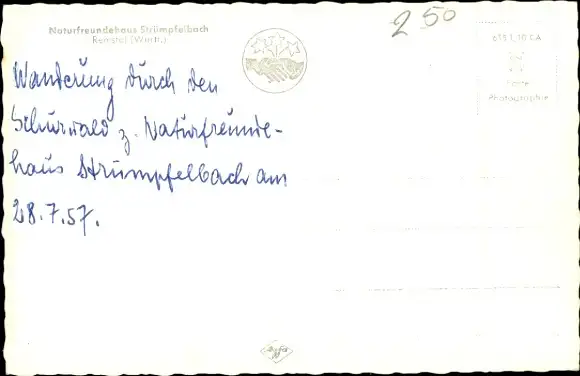 Naturfreundehaus Strümpfelbach
Remstal (Württ.)
2 50
Echte
Photographie
Wanderung durch den
Schurwald z. Naturfreunde-
haus Strümpfelbach am
28.7.57.
Agfa